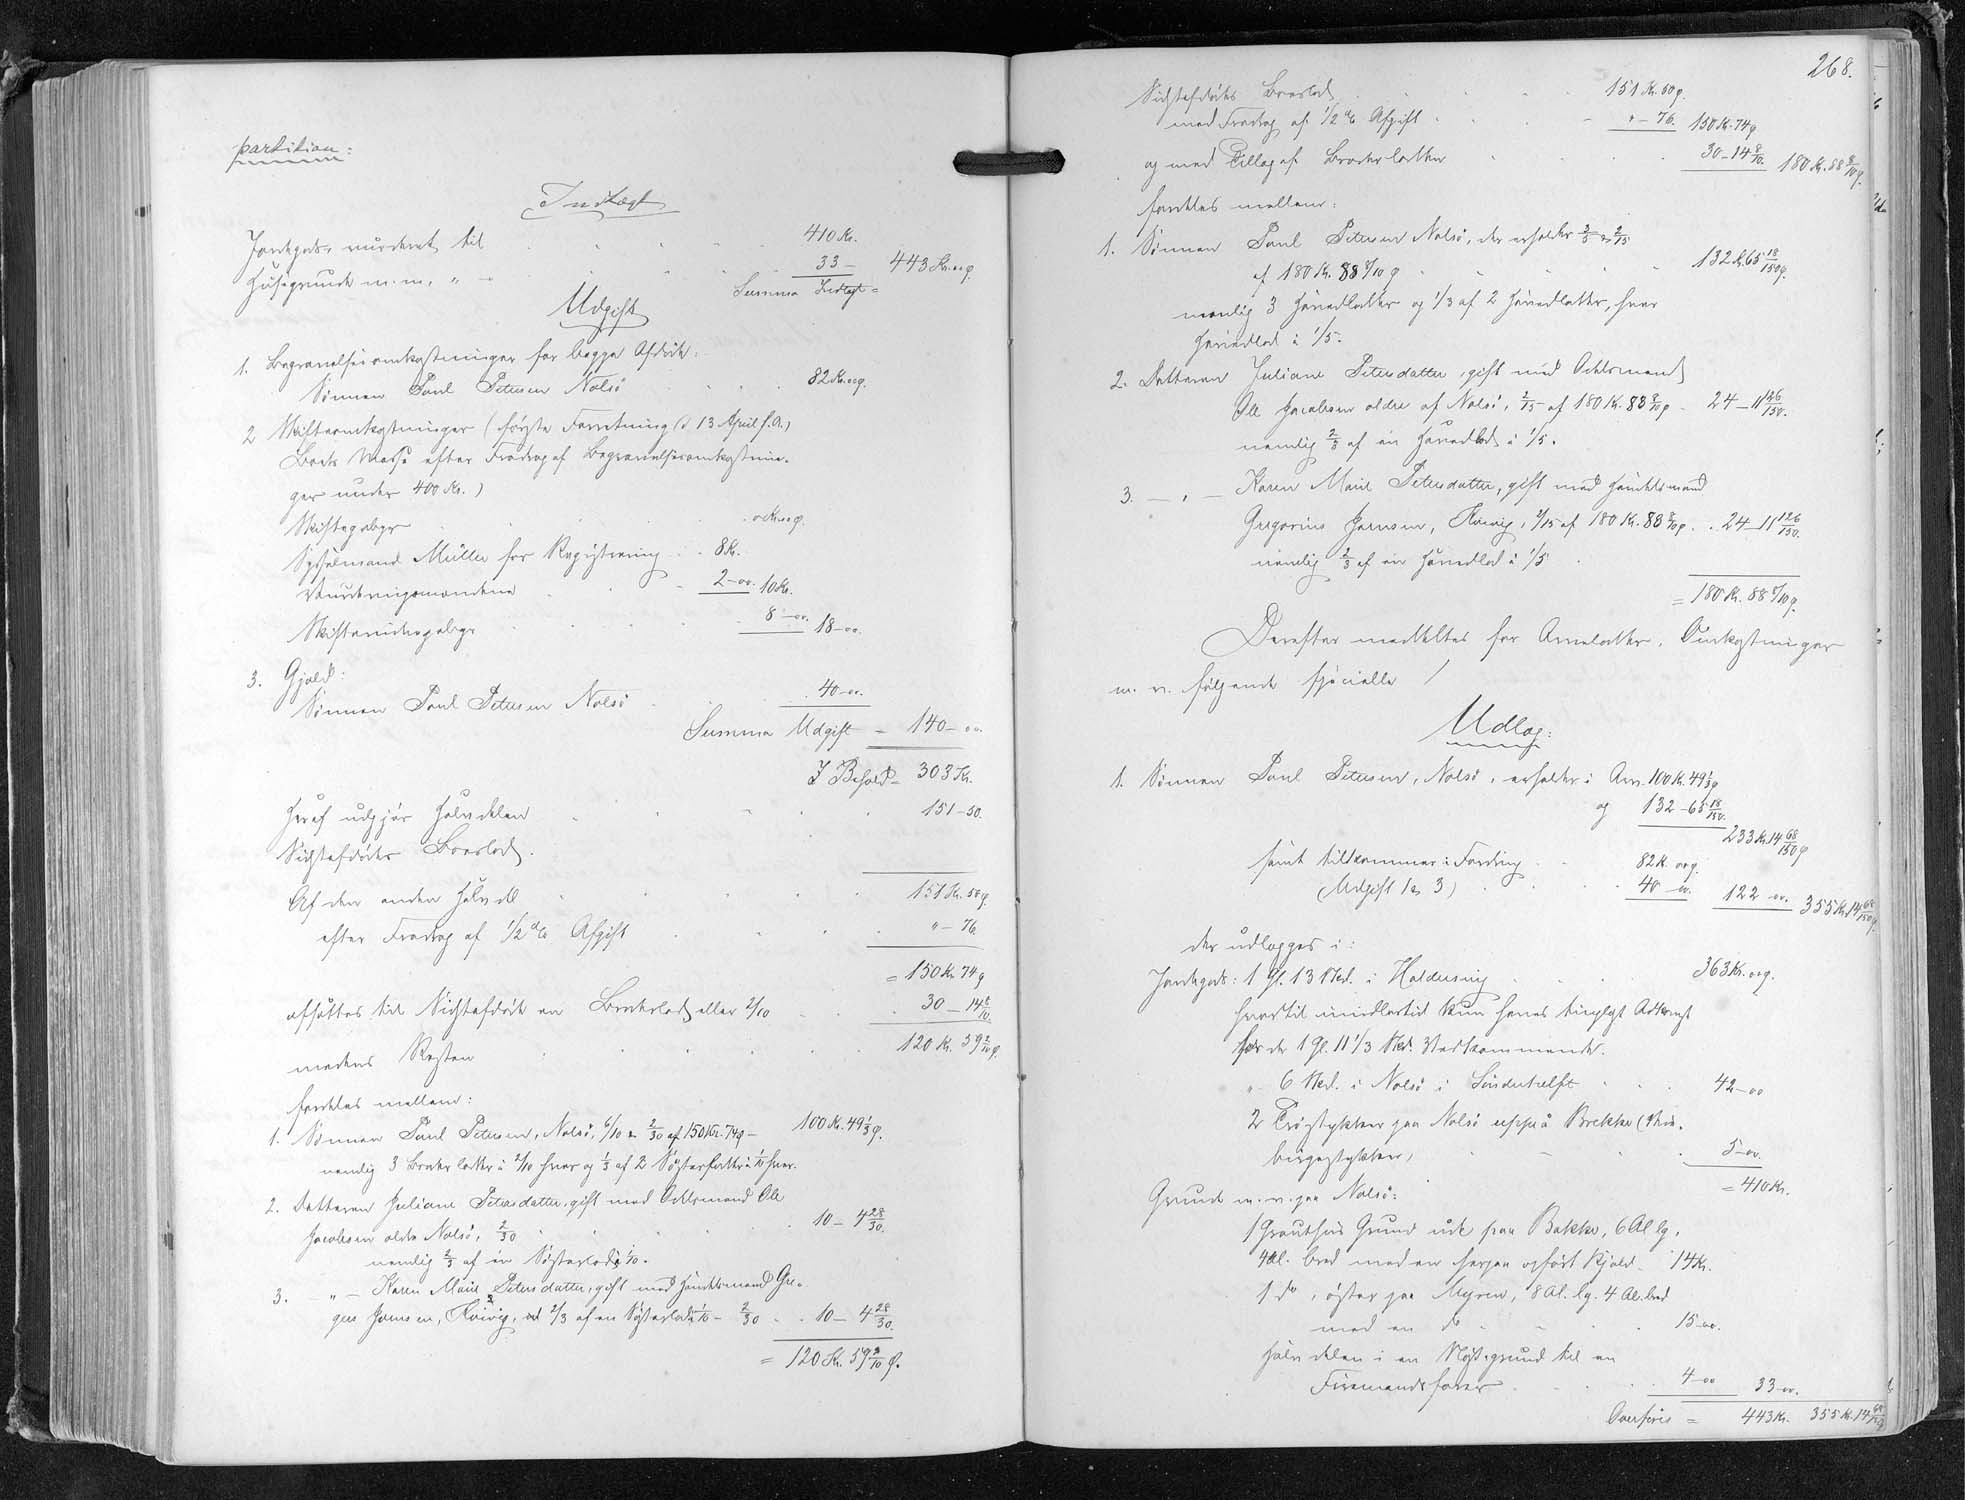 partition:
Indtægt
Jordegods, vurderet til 410 Kr.
Husegrunde m. m. " - 33 - 443 Kr. oo ø.
Summa Indtægt =
Udgift
1. Begravelsesomkostninger for begge Afdøde:
Sønnen Poul Petersen Nolsø 82 Kr. oo ø.
2 Skifteomkostninger (første Forretning d 13 April f. A.)
Boets Masse efter Fradrag af Begravelsesomkostnin-
ger under 400 Kr.)
Skiftegebyr o Kr. oo ø.
Sysselmand Müller for Registrering 8 Kr.
Vurderingsmændene 2 - oo. 10 Kr.
8 - oo. 18 - oo.
3. Gjæld:
Sønnen Poul Petersen Nolsø 40 - oo.
Summa Udgift = 140 - oo.
I Behold = 303 Kr.
Heraf udgjør Halvdelen 151 - 50.
Sidstafdødes Boeslod.
Af den anden Halvdel 151 Kr. 50 ø.
efter Fradrag af 1/2 % Afgift " - 76.
= 150 Kr. 74 ø
afsættes til Sidstafdøde en Broderlod eller 2/10 30 - 14 8/10.
medens Resten 120 Kr. 59 2/10 ø.
fordeles mellem:
1. Sønnen Poul Petersen, Nolsø, 6/10 & 2/30 af 150 Kr. 74 ø - 100 Kr. 49 1/3 ø.
nemlig 3 Broderlodder à 2/10 hver og 1/3 af 2 Søsterlodder à 1/10 hver.
2. Datteren Juliane Petersdatter, gift med Odelsmand Ole
Jacobsen ældre Nolsø, 2/30 10 - 4 28/30.
nemlig 2/3 af en Søsterlod à 1/10.
3. - " - Karen Marie Petersdatter, gift med Handelsmand Gre-
gers Joensen, Kvivig, 2/3 af en Søsterlod à 1/10 - 2/30 10 - 4 28/30.
= 120 Kr. 59 2/10 ø.
268.
Sidstafdødes Boeslod 151 Kr. 50 ø.
med Fradrag af 1/2 % Afgift " - 76. 150 Kr. 74 ø
og med Tillæg af Broderlodden 30 - 14 8/10. 180 Kr. 88 8/10 ø.
fordeles mellem:
1. Sønnen Poul Petersen Nolsø, der erholder 3/5 & 2/15
af 180 Kr. 88 8/10 ø 132 Kr. 65 18/150 ø.
nemlig 3 Hovedlodder og 1/3 af 2 Hovedlodder, hver
Hovedlod à 1/5.
2. Datteren Juliane Petersdatter, gift med Odelsmand
Ole Jacobsen ældre af Nolsø, 2/15 af 180 Kr. 88 8/10 ø - 24 - 11 126/150.
nemlig 2/3 af en Hovedlod à 1/5.
3. - " - Karen Marie Petersdatter, gift med Handelsmand
Gregorius Joensen, Kvivig, 2/15 af 180 Kr. 88 8/10 ø 24 - 11 126/150.
nemlig 2/3 af en Hovedlod à 1/5
= 180 Kr. 88 8/10 ø.
Derefter meddeltes for Arvelodder, Omkostninger
m. v. følgende specielle /
Udlæg:
1. Sønnen Poul Petersen, Nolsø, erholder i Arv 100 Kr. 49 1/3 ø
og 132 - 65 18/150.
233 Kr. 14 68/150 ø
samt tilkommer i Fordring 82 Kr. oo ø.
(Udgift 1 & 3) 40 - oo. 122 - oo. 355 Kr. 14 68/150 ø.
der udlægges i:
Jordegods: 1 Gl. 13 Skd. i Haldersvig 363 Kr. oo ø.
hvortil imidlertid kun haves tinglyst Adkomst
for de 1 Gl. 11 1/3 Skd. Vedkommende.
" 6 Skd. i Nolsø i Sünderhelft 42 - oo
2 Trøstykker paa Nolsø uppá Brekku (
5 - oo.
= 410 Kr.
Grund m. v. paa Nolsø:
1 Grund ude paa Bakke, 6 Al. lg.
4 Al. bred med en herpaa opført Kjald 14 Kr.
1 do, øster paa Myren, 8 Al. lg. 4 Al. bred
med en do 15 - oo.
Halvdelen i en Nøstegrund til en
Firemandsfarer 4 - oo 33 - oo.
Overføres = 443 Kr. 355 Kr. 14 68/150 ø